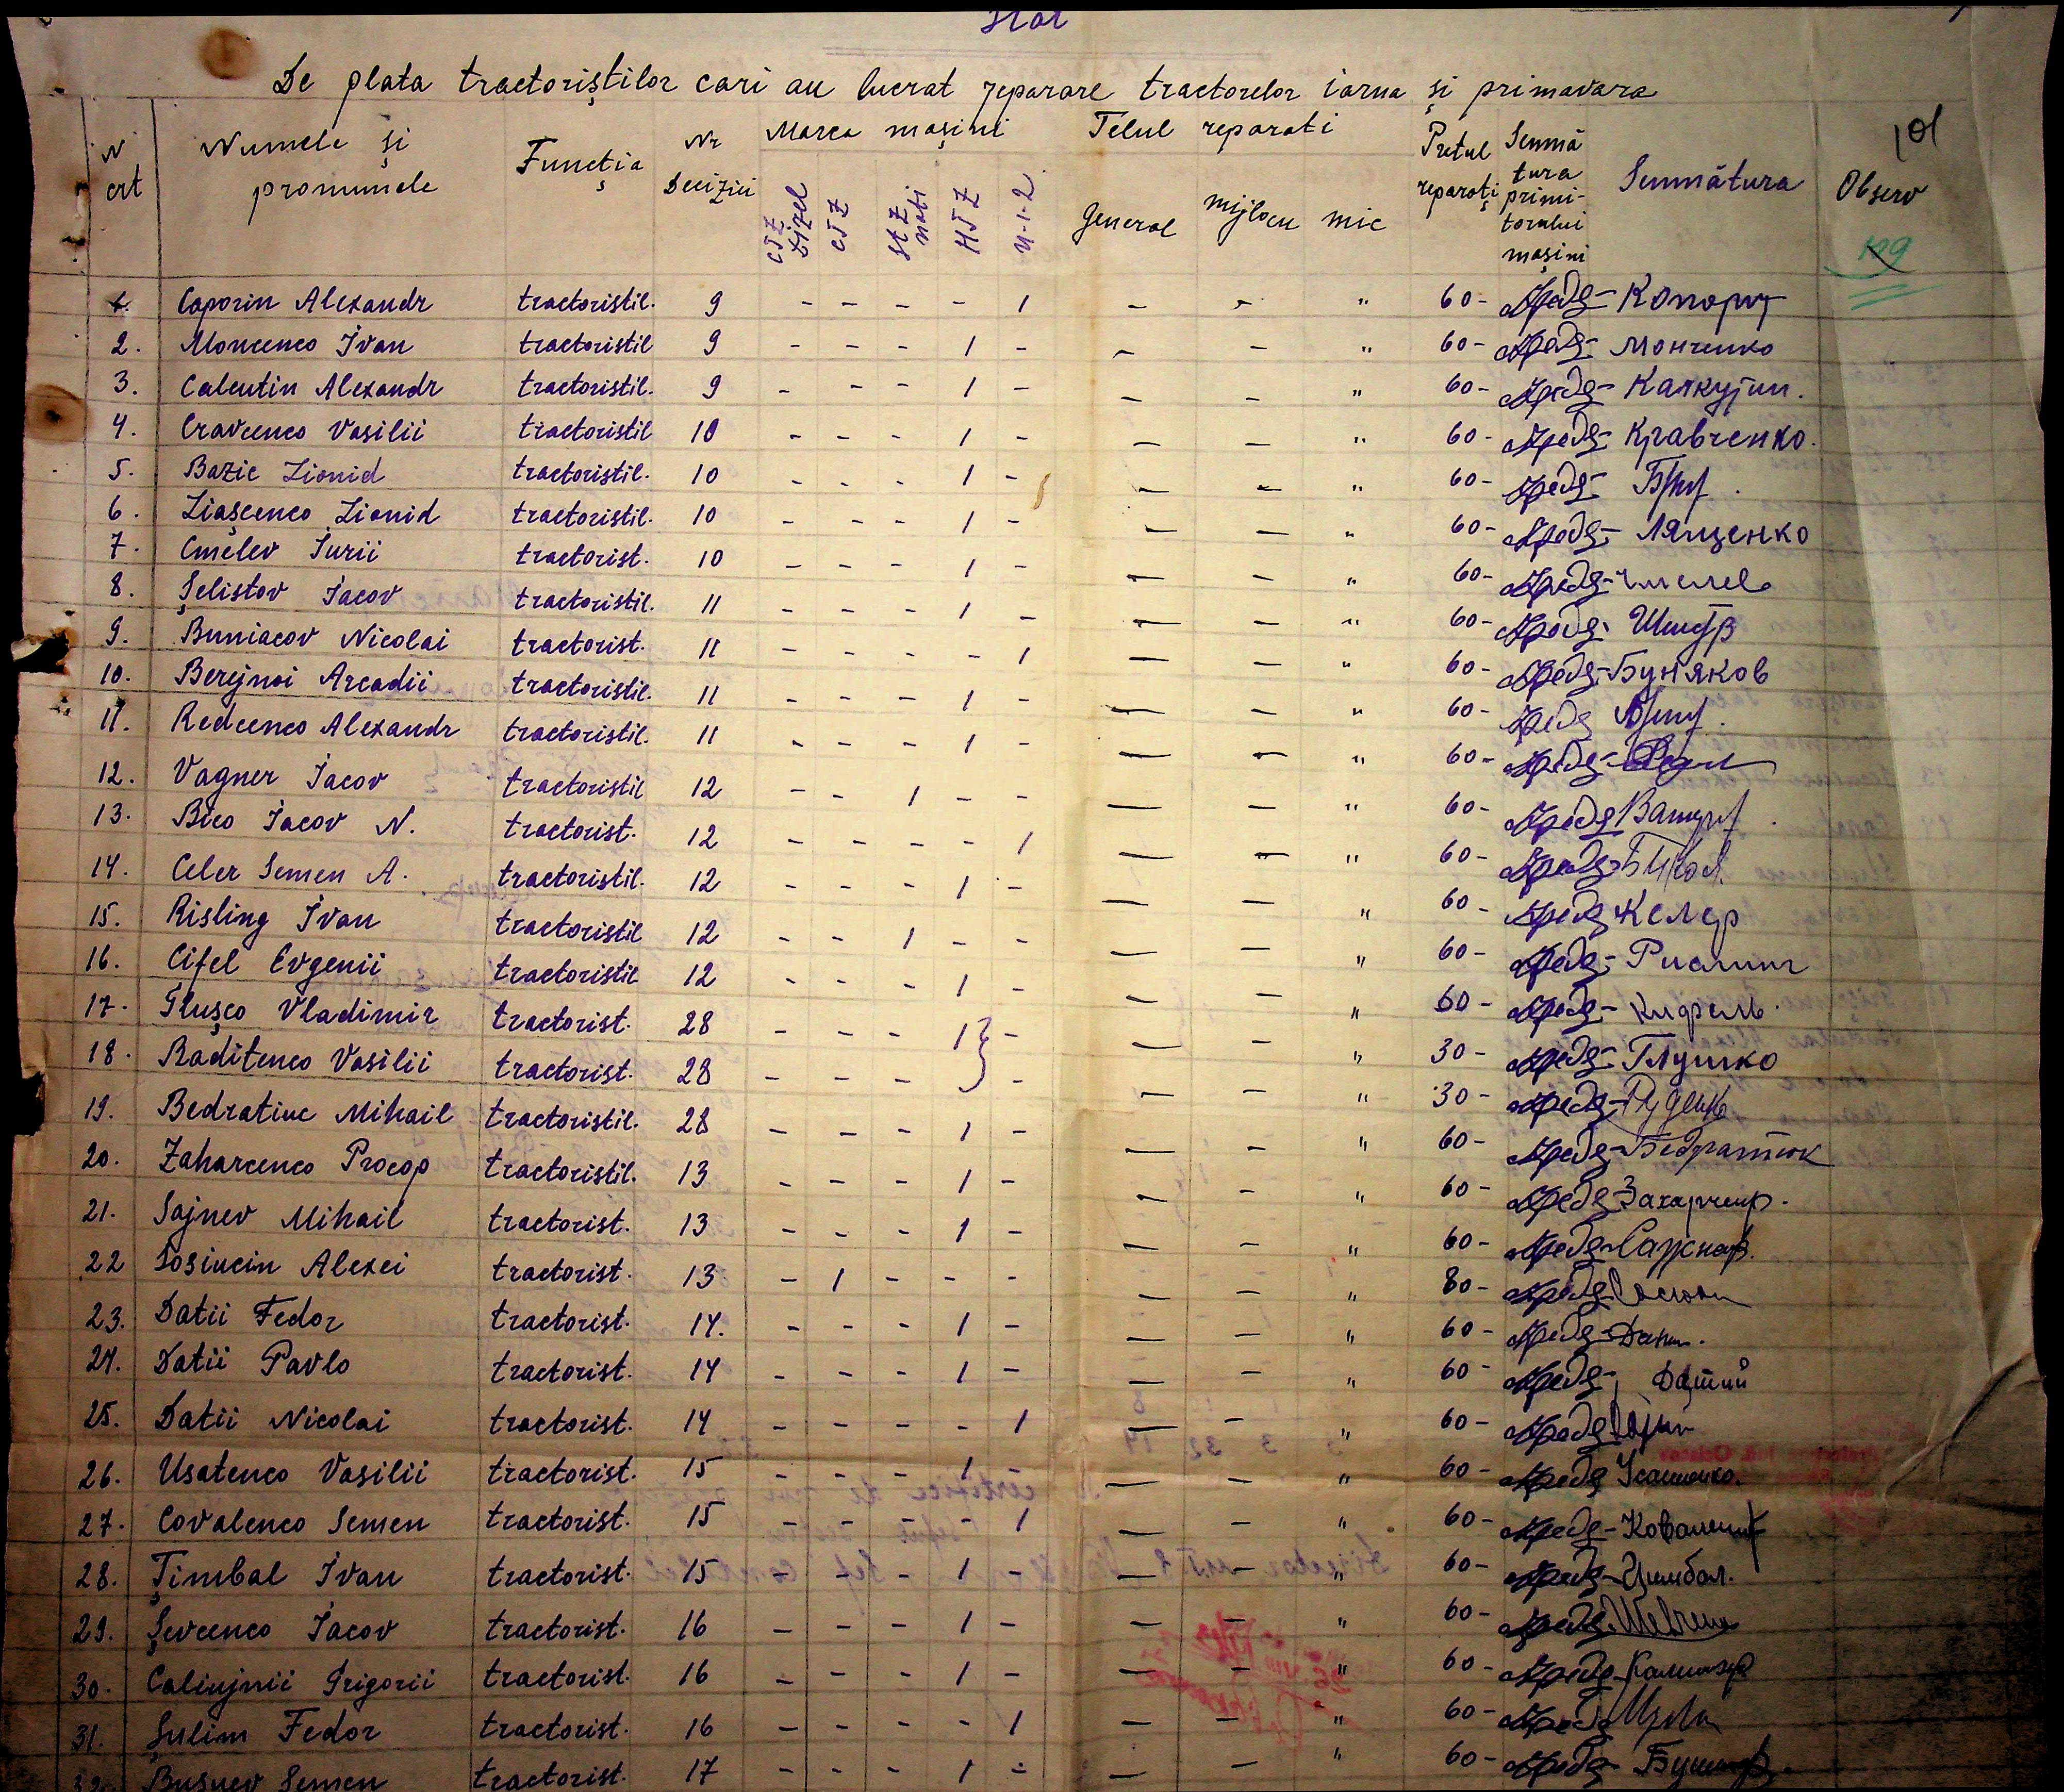 Stat
De plata tractoriștilor cari au lucrat reparare tractorelor iarna și primavara
N crt Numele și pronumele Funcția Nr Deciziei Marca mașini Felul reparati Pretul reparați Semnătura primitorului mașini Semnătura Observ 101
ctz dizel ctz stz nati HTZ U-1-2 general mijlocu mic 129
1. Caporin Alexandr tractoristil. 9 - - - - 1 - - " 60-
2. Moncenco Ivan tractoristil 9 - - - 1 - - - " 60- Монченко
3. Calcutin Alexandr tractoristil. 9 - - - 1 - - - " 60- Калкутин.
4. Cravcenco Vasilii tractoristil 10 - - - 1 - - - " 60- Кравченко.
5. Bazic Lionid tractoristil. 10 - - - 1 - - - " 60-
6. Liașcenco Lionid tractoristil. 10 - - - 1 - - - " 60- Лященко
7. Cmelev Iurii tractorist. 10 - - - 1 - - - " 60-
8. Șelistov Iacov tractoristil. 11 - - - 1 - - - " 60-
9. Buniacov Nicolai tractorist. 11 - - - - 1 - - " 60- Буняков
10. Berejnoi Arcadii tractoristil. 11 - - - 1 - - - " 60-
11. Redcenco Alexandr tractoristil. 11 - - - 1 - - - " 60-
12. Vagner Iacov tractoristil 12 - - 1 - - - - " 60-
13. Bico Iacov N. tractorist. 12 - - - - 1 - - " 60-
14. Celer Semen A. tractoristil. 12 - - - 1 - - - " 60- Келер
15. Risling Ivan tractoristil 12 - - 1 - - - - " 60- Рислинг
16. Cifel Evgenii tractoristil 12 - - - 1 - - - " 60- Кифель.
17. Glușco Vladimir tractorist. 28 - - - 1 } - - - " 30- Глушко
18. Raditenco Vasilii tractorist. 28 - - - - - - " 30-
19. Bedratiuc Mihail tractoristil. 28 - - - 1 - - - " 60- Бедратюк
20. Zaharcenco Procop tractoristil. 13 - - - 1 - - - " 60-
21. Sajnev Mihail tractorist. 13 - - - 1 - - - " 60- Сажнев.
22 Sosiucin Alexei tractorist. 13 - 1 - - - - - " 80-
23. Datii Fedor tractorist. 14. - - - 1 - - - " 60-
24. Datii Pavlo tractorist. 14 - - - 1 - - - " 60- Датий
25. Datii Nicolai tractorist. 14 - - - - 1 - - " 60-
26. Usatenco Vasilii tractorist. 15 - - - 1 - - - " 60- Усатенко.
27. Covalenco Semen tractorist. 15 - - - - 1 - - " 60-
28. Țimbal Ivan tractorist. 15 - - - 1 - - - " 60- Цимбал.
29. Șevcenco Iacov tractorist. 16 - - - 1 - - - " 60-
30. Caliujnii Grigorii tractorist. 16 - 1 - - - " 60-
31. Șulim Fedor tractorist. 16 - - - - 1 - - " 60-
32. Bușuev Semen tractorist. 17 - - - 1 - - - " 60-